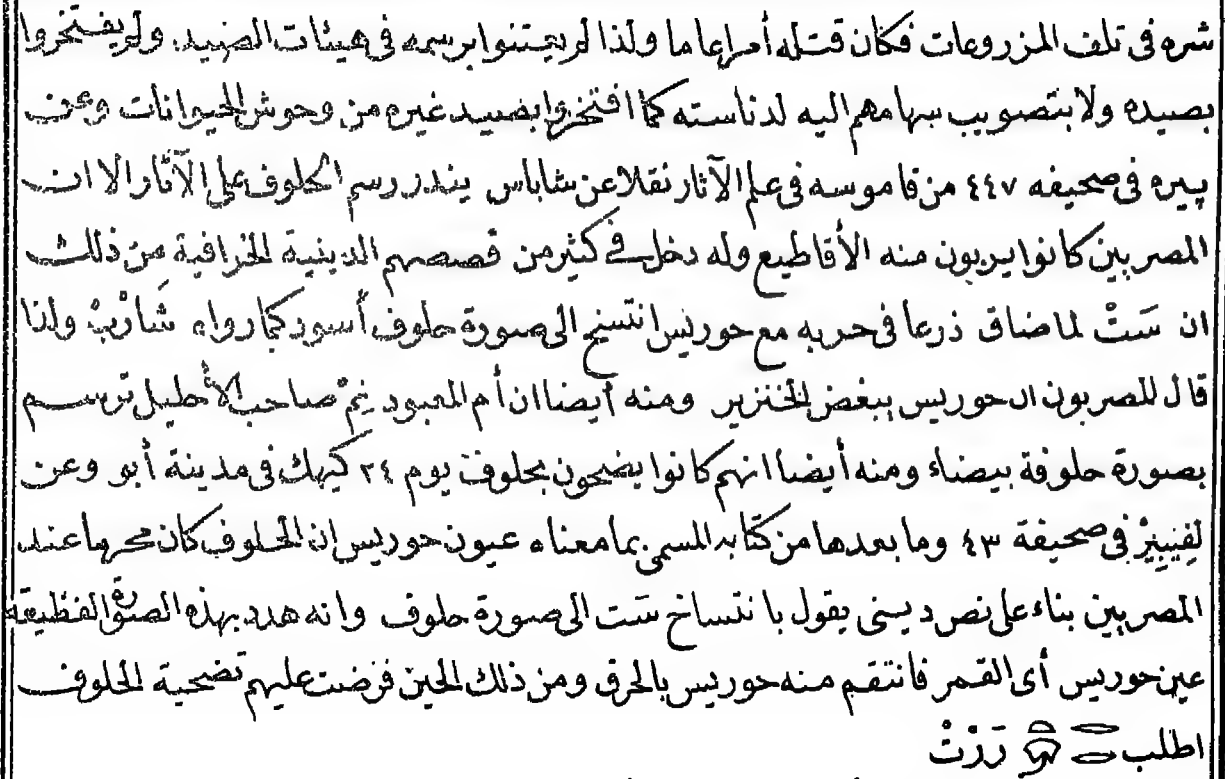 شره فى تلف المزروعات فكان قتله أمراعاما ولذا لم يعتنوا برسمه فى هيئات الصيد. ولم يفتخروا
بصيده ولا بتصويب سهامهم اليه لدناسته كما افتخروا بصيد غيره من وحوش الحيوانات وعن
پيره فى صحيفه ٤٤٧ من قاموسه فى علم الآثار نقلا عن شاباس يندر رسم الحلوف على الآثار الا ان
المصريين كانوا يربون منه الأقاطيع وله دخل فى كثير من قصصهم الدينية الخرافية من ذلك
ان سَتْ لما ضاق ذرعا فى حربه مع حوريس انتسخ الى صورة حلوف أسود كما رواه شَارْبْ ولذا
قال المصريون ان حوريس يبغض الخنزير ومنه أيضا ان أم المعبود خِمْ صاحب الأحليل ترسم
بصورة حلوفة بيضاء ومنه أيضا انهم كانوا يضحون بحلوف يوم ٢٤ كيهك فى مدينة أبو وعن
لِفِيبِيْر فى صحيفة ٤٣ وما بعدها من كتابه المسمى بما معناه عيون حوريس ان الحلوف كان محرما عند
المصريين بناء على نص دينى يقول بانتساخ سَت الى صورة حلوف وانه هدد بهذه الصورة الفظيعة
عين حوريس أى القمر فانتقم منه حوريس بالحرق ومن ذلك الحين فرضت عليهم تضحية الحلوف
اطلب رَرْتْ